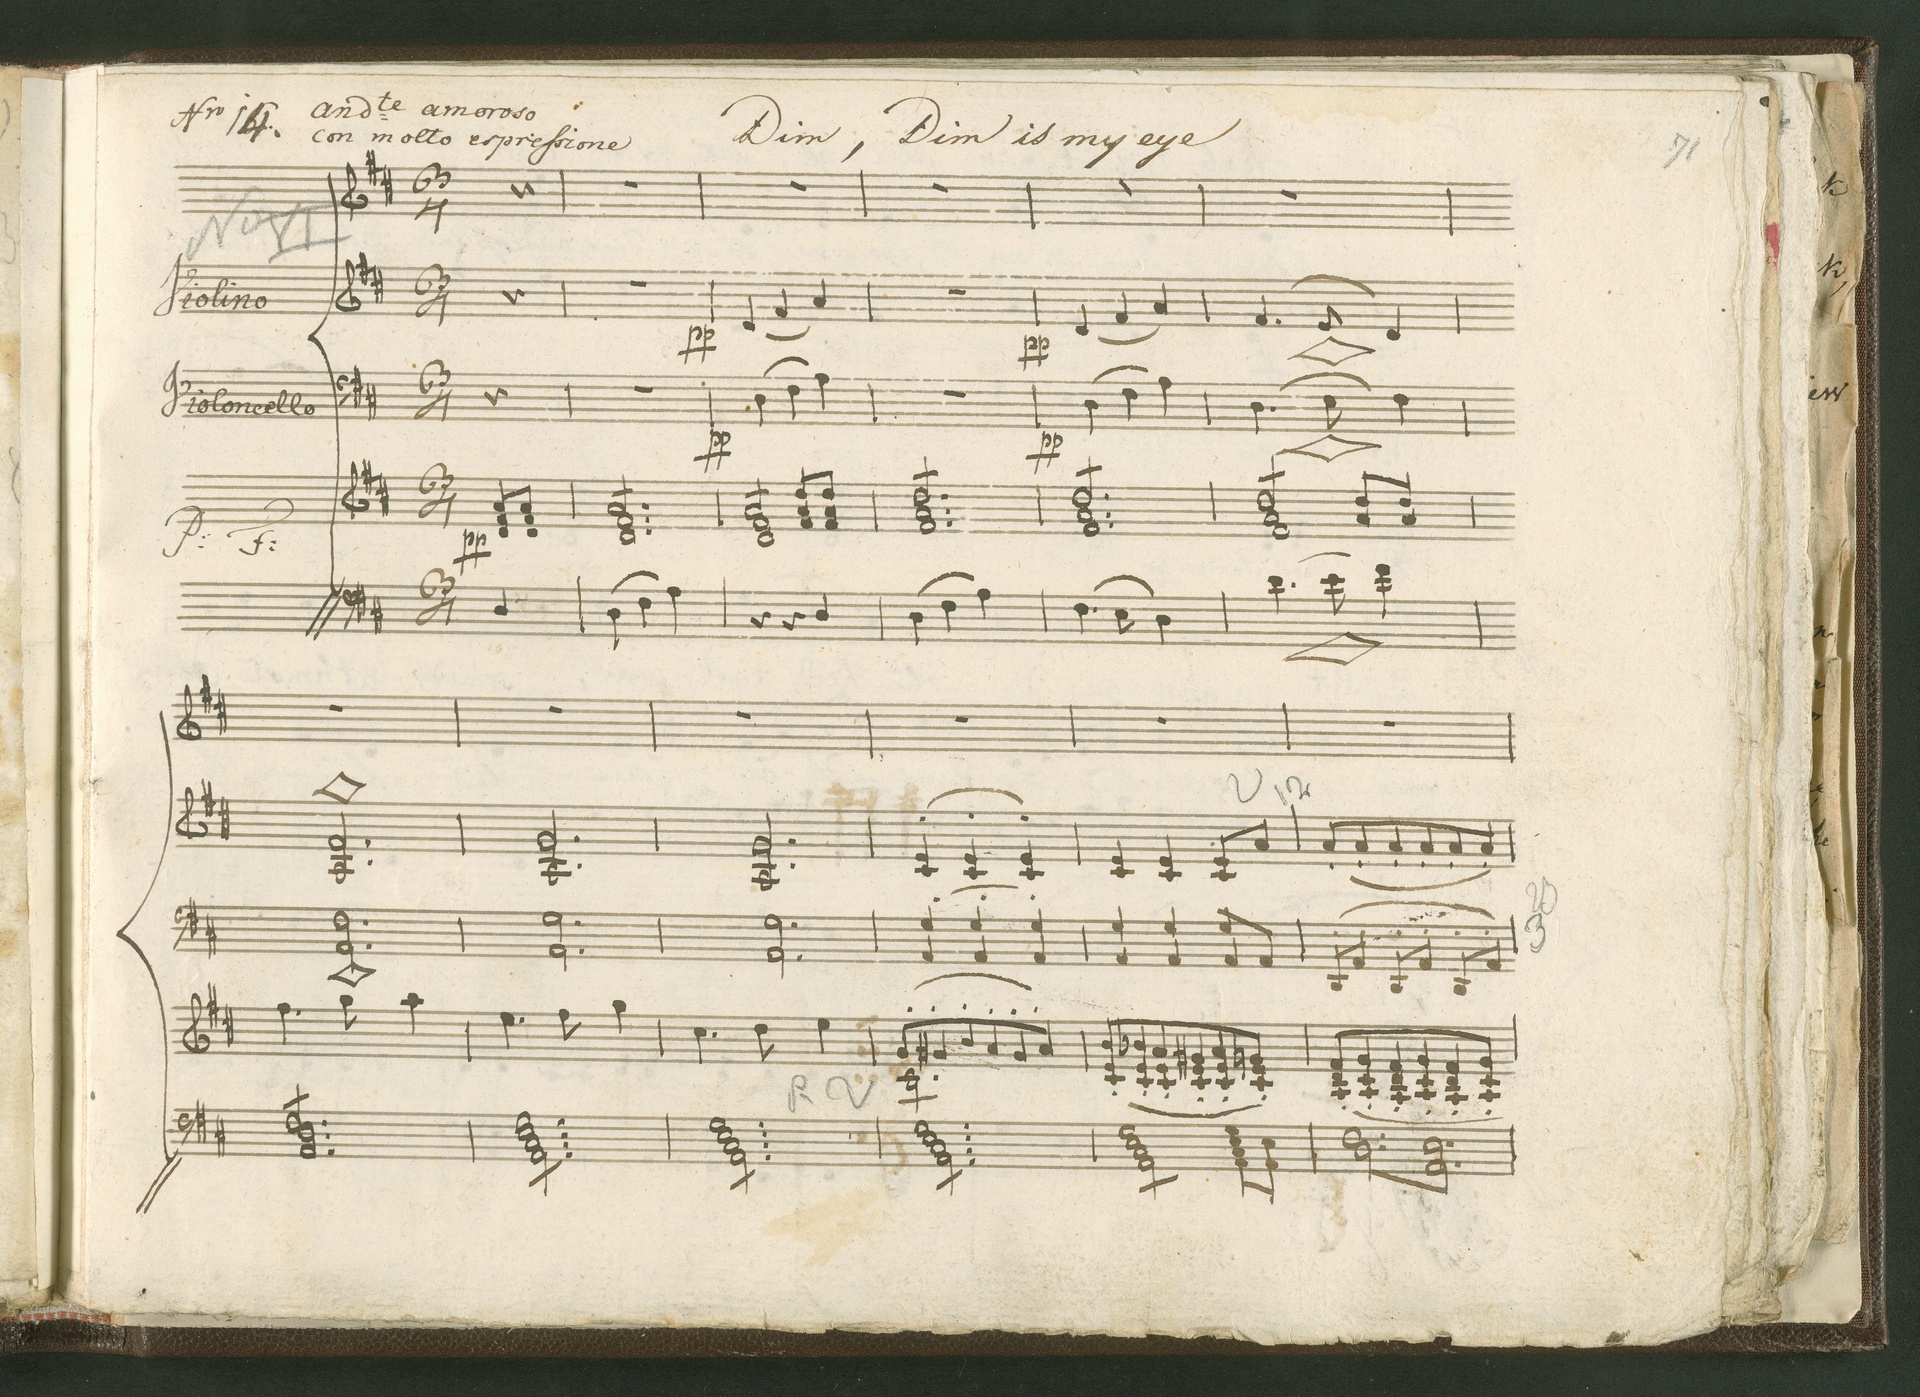 Nro 14. andte amoroso
con molto espressione
Dim, Dim is my eye
71
No VI
Violino
pp
pp
Violoncello
pp
pp
P: F:
pp
V 12
20
3